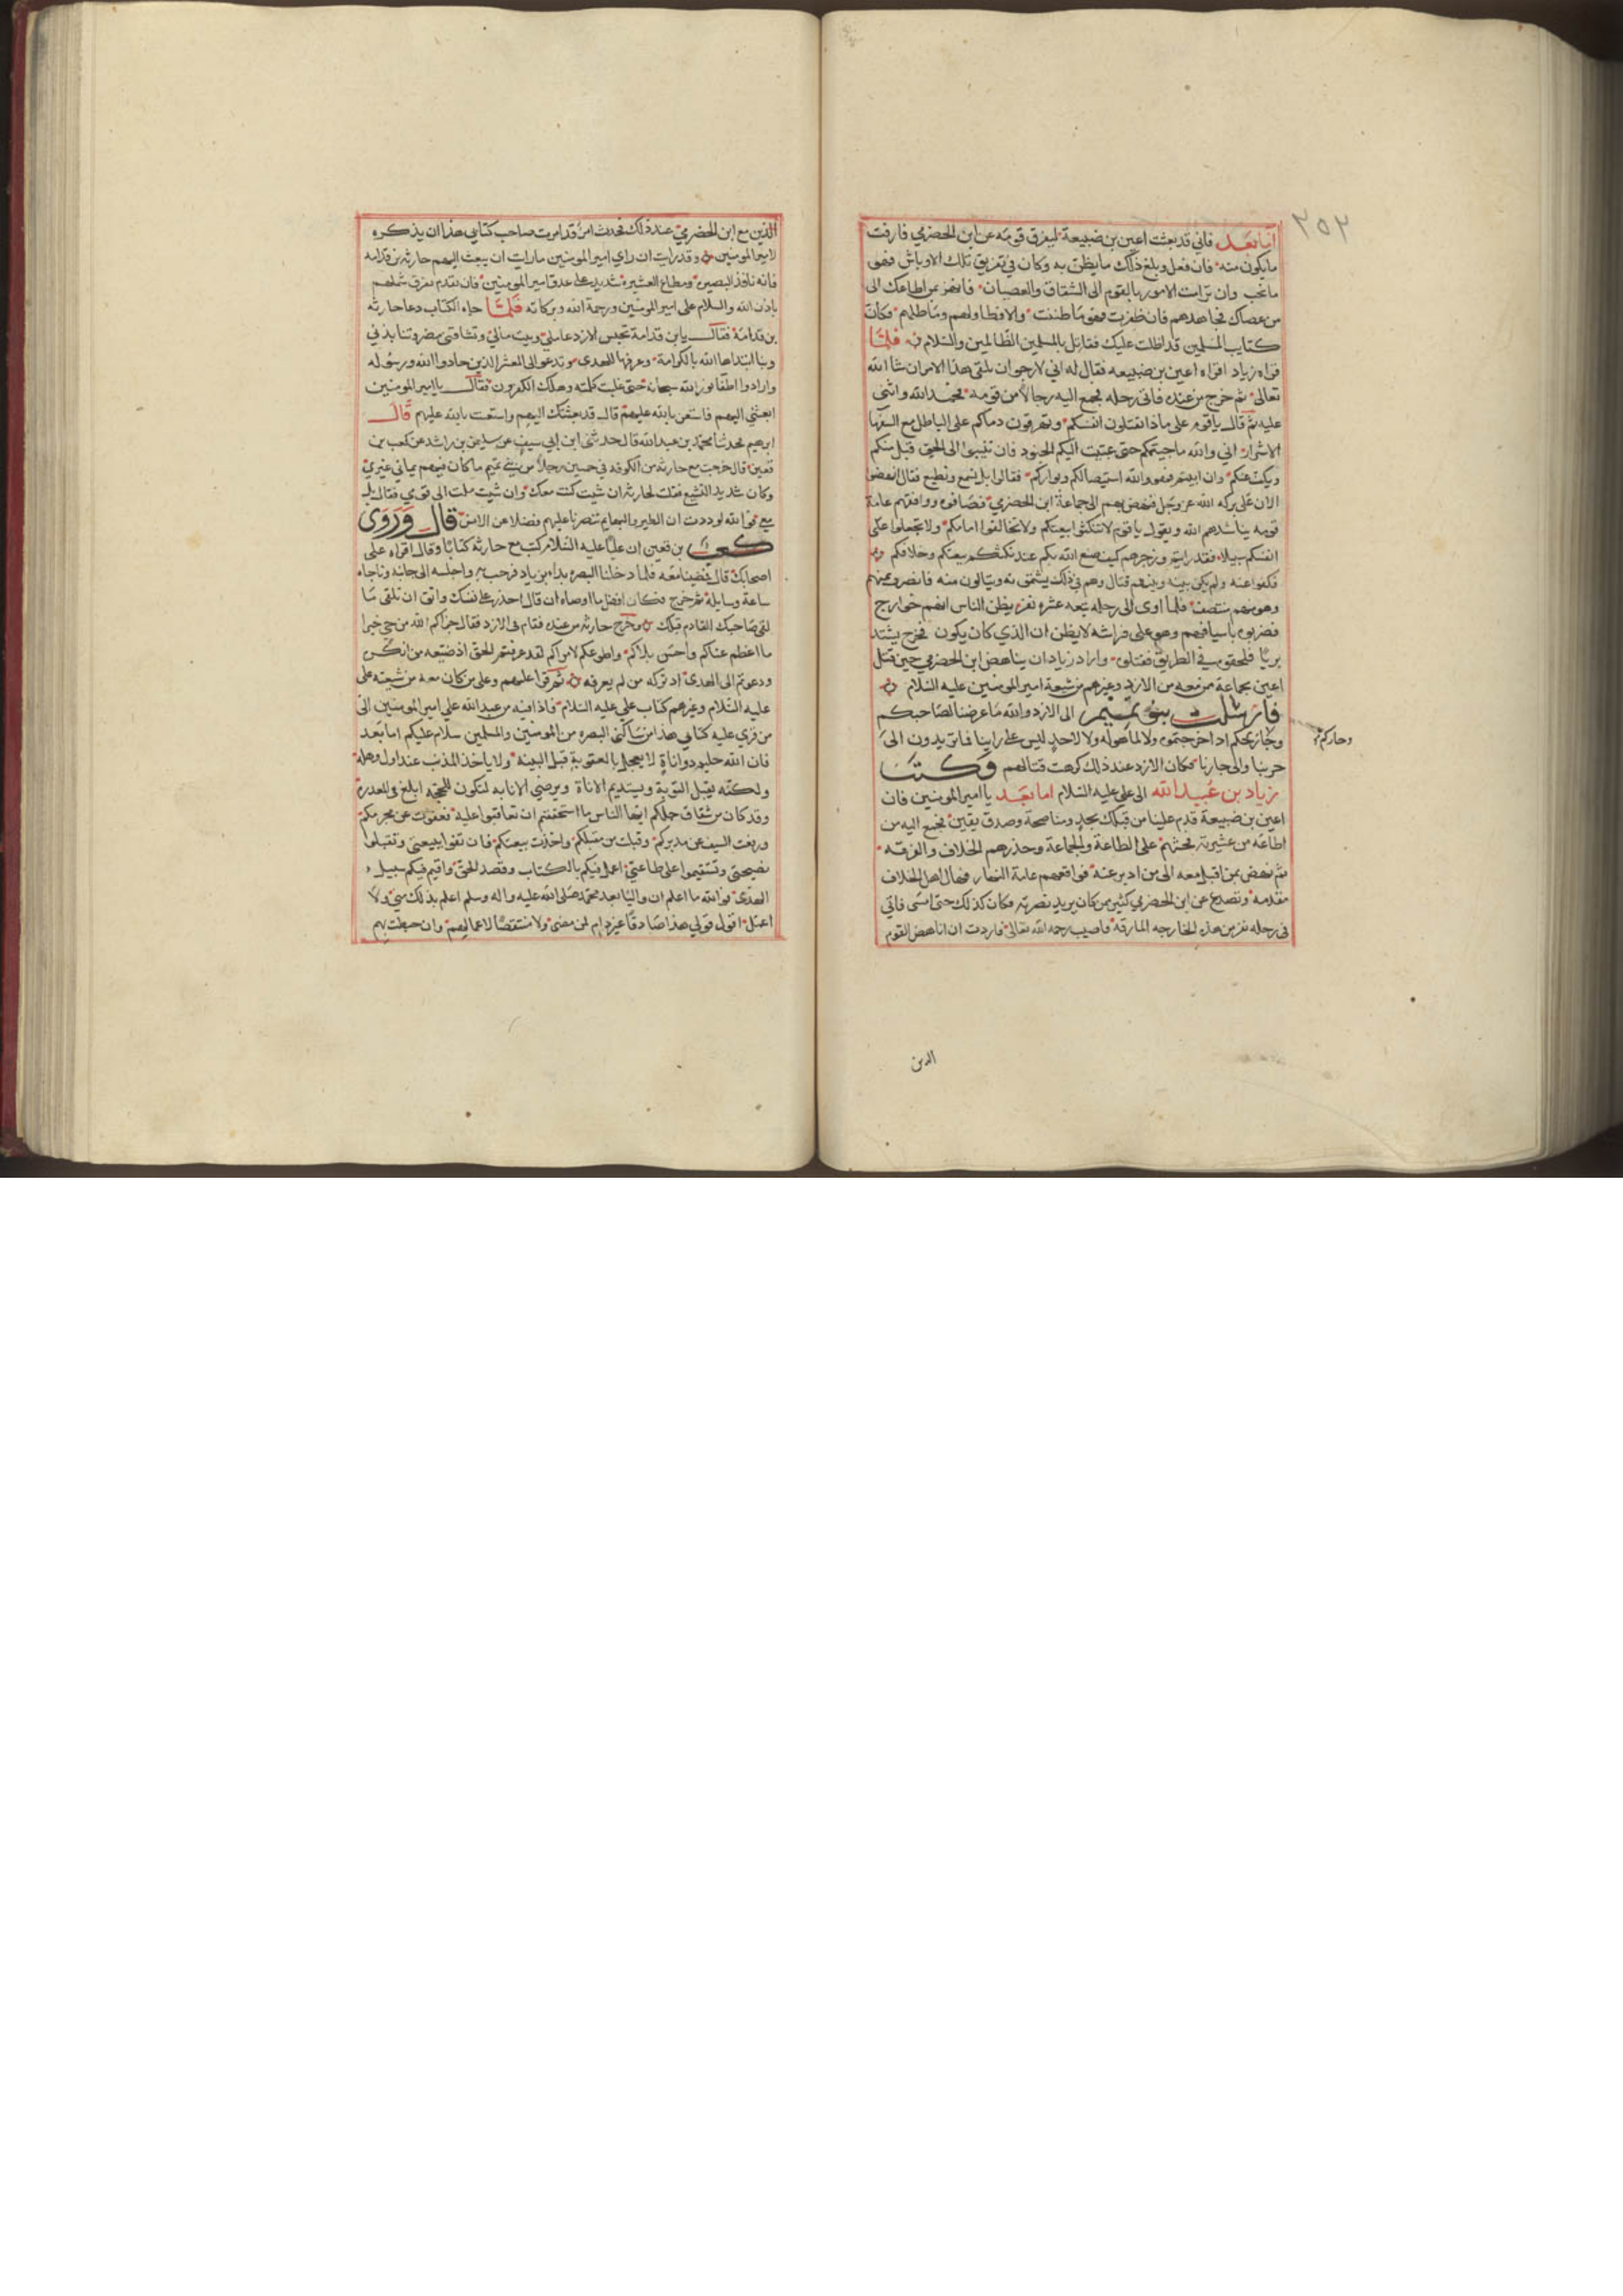 ٢٥٢
اما بعد فاني قد بعثت اعين بن ضبيعة ليفرق قومه عن ابن الحضرمي فارقت
مايكون منه فان فعل وبلغ ذلك مايظن به وكان في تفريق تلك الاوباش فهو
مانحب وان ترامت الامور بالقوم الى الشقاق والعصيان فانهض بمن اطاعك الى
من عصاك فجاهدهم فان ظفرت فهو ما ظننت والا فطاولهم وماطلهم فكان
كتايب المسلمين قد اظلت عليك فقاتل بالمسلمين الظالمين والسلام فلما
قراه زياد اقراه اعين بن ضبيعه فقال له اني لارجوان يلقى هذا الامر ان شا الله
تعالى ثم خرج من عنده فاتى رحله فجمع اليه رجالا من قومه فحمد الله واثنى
عليه ثم قال ياقوم على ماذا تقتلون انفسكم وتهرقون دماكم على الباطل مع السفها
الاشرار اني والله ماجيتكم حتى عبيت اليكم الجنود فان تنيبوا الى الحق قبل منكم
ويكف عنكم وان ابيتم فهو والله استيصالكم وبواركم فقالوا بل نسمع ونطيع فقال انهضوا
الان على بركه الله عز وجل فنهض بهم الى جماعة ابن الحضرمي فصافوه وواقفهم عامة
قومه يناشدهم الله ويقول ياقوم لاتنكثوا بيعتكم ولاتخالفوا امامكم ولا تجعلوا على
انفسكم سبيلا فقد رايتم وجربتم كيف صنع الله بكم عند نكثكم بيعتكم وخلافكم
فكفوا عنه ولم يكن بينه وبينهم قتال وهم في ذلك يشتمونه وينالون منه فانصرف عنهم
وهو منهم منتصف فلما اوى الى رحله تبعه عشره نفر يظن الناس انهم خوارج
فضربوه باسيافهم وهو على فراشه لايظن ان الذي كان يكون فخرج يشتد
فلحقوه في الطريق فقتلوه واراد زياد ان يناهض ابن الحضرمي حين قتل
اعين بجماعة من معه من الازد وغيرهم من شيعة امير المومنين عليه السلام
فارسلت بنو تميم الى الازد والله ماعرضنا لصاحبكم
وحاركم
اذ اجرتموه ولا لماهوله ولا لاحد ليس على راينا فما تريدون الى
حربنا والى جارنا فكان الازد عند ذلك كرهت قتالهم وكتب
زياد بن عبيد الله الى على عليه السلام اما بعد يا امير المومنين فان
اعين بن ضبيعة قدم علينا من قبلك بجد ومناصحة وصدق يقين فجمع اليه من
اطاعه من عشيرته فحثهم على الطاعة والجماعة وحذرهم الخلاف والفرقه
ثم نهض بمن اقبل معه الى من ادبر عنه فواقفهم عامة النهار فهال اهل الخلاف
مقدمه وتصدع عن ابن الحضرمي كثير ممن كان يريد نصرته فكان كذلك حتى امسى فاتي
في رحله نفر من هذه الخارجه المارقه فاصيب رحمه الله تعالى فاردت ان اناهض القوم
الدين
الذين مع ابن الحضرمي عند ذلك فحدث امر قد امرت صاحب كتابي هذا ان يذكره
لامير المومنين وقد رايت ان راي امير المومنين مارايت ان يبعث اليهم حارثه بن قدامه
فانه نافذ البصيره ومطاع العشيره شديد على عدو امير المومنين فان يقدم يفرق شملهم
باذن الله والسلام على امير المومنين ورحمة الله وبركاته فلما جاه الكتاب دعا حارثه
بن قدامة فقال يابن قدامة تحبس الازد عاملي وبيت مالي وتشاقني مضر وتنابذني
وبنا ابتداها الله بالكرامة وعرفها الهدى وتدعوا الى المعشر الذين حادوا الله ورسوله
وارادوا اطفا نور الله سبحانه حتى علت كلمته وهلك الكفرون فقال يا امير المومنين
ابعثني اليهم فاستعن بالله عليهم قال قد بعثتك اليهم واستعنت بالله عليهم قال
ابرهيم فحدثنا محمد بن عبد الله قال حدثني ابن ابي سيف عن سليمن بن راشد عن كعب بن
قعين قال خرجت مع حارثه من الكوفه في خمسين رجلا من بني تميم ماكان فيهم يماني غيري
وكان شديد التشيع فقلت لحارثه ان شيت كنت معك وان شيت ملت الى قومي فقال بل
معي فوالله لوددت ان الطير والبهايم تنصرنا عليهم فضلا عن الانس قال وروى
كعب بن قعين ان عليا عليه السلام كتب مع حارثه كتابا وقال اقراه على
اصحابك قال فمضينا معه فلما دخلنا البصره بدا بزياد فرحب به واجلسه الى جانبه وناجاه
ساعة وسايله ثم خرج فكان افضل ما اوصاه ان قال احذر على نفسك واتق ان تلقى ما
لقي صاحبك القادم قبلك وخرج حارثه من عنده فقام في الازد فقال جزاكم الله من حي خيرا
ما اعظم عناكم واحسن بلاكم واطوعكم لامراكم لقد عرفتم الحق اذ ضيعه من انكره
ودعوتم الى الهدى اذ تركه من لم يعرفه ثم قرا عليهم وعلى من كان معه من شيعته على
عليه السلام وغيرهم كتاب على عليه السلام فاذا فيه من عبد الله على امير المومنين الى
من قري عليه كتابي هذا من ساكني البصره من المومنين والمسلمين سلام عليكم اما بعد
فان الله حليم ذو اناة لا يعجل بالعقوبة قبل البينه ولا ياخذ المذنب عند اول وهله
ولكنه يقبل التوبة ويستديم الاناة ويرضي الانابه لتكون للحجه ابلغ في المعذرة
وقد كان من شقاق جلكم ايها الناس ما استحققتم ان تعاقبوا عليه فعفوت عن مجرمكم
ورفعت السيف عن مدبركم وقبلت من مقبلكم واخذت بيعتكم فان تفوا ببيعتي وتقبلوا
نصيحتي وتستقيموا على طاعتي اعمل فيكم بالكتاب وقصد الحق واقيم فيكم سبيل
الهدى فوالله ما اعلم ان واليا بعد محمد صلى الله عليه واله وسلم اعلم بذلك مني ولا
اعمل اقول قولي هذا صادقا غير ذام لمن مضى ولا منتقصا لاعمالهم وان خبطت بهم